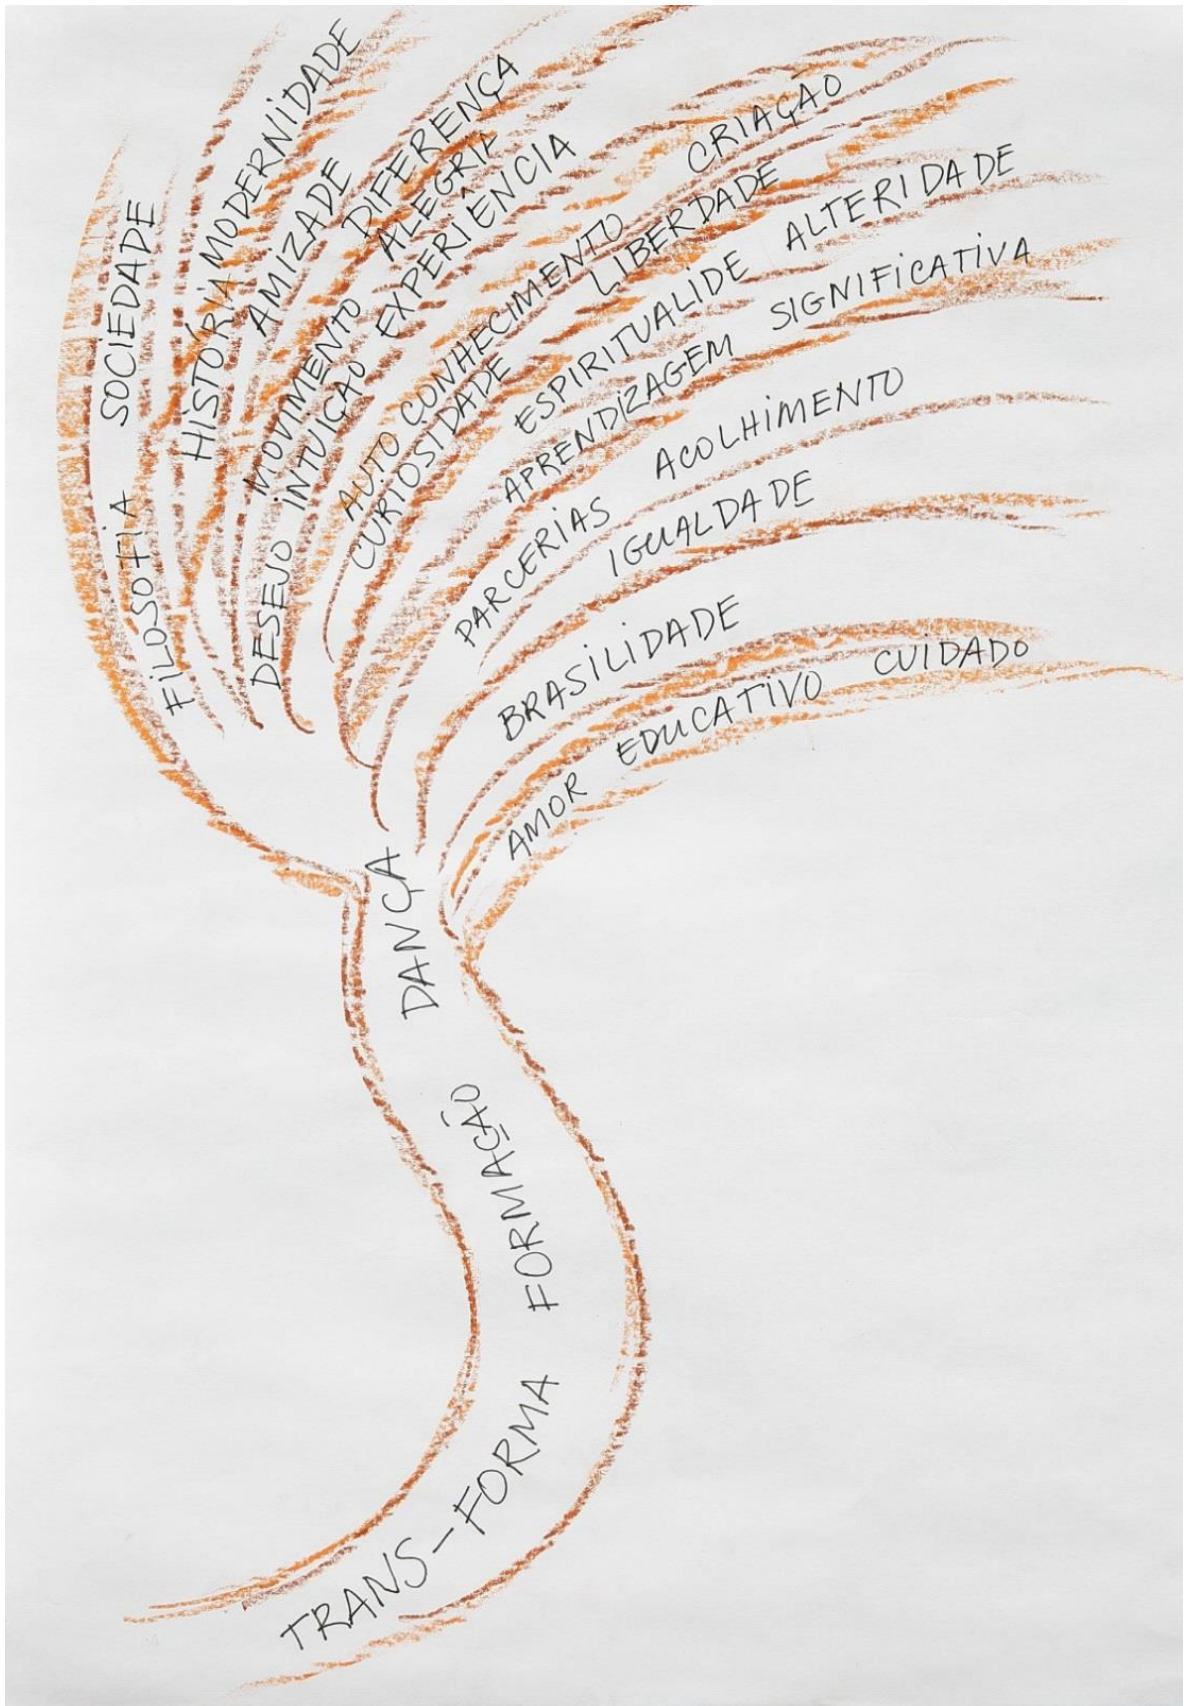 FILOSOFIA SOCIEDADE
HISTÓRIA MODERNIDADE
AMIZADE
DESEJO MOVIMENTO DIFERENÇA
INTUIÇÃO ALEGRIA
EXPERIÊNCIA
AUTO CONHECIMENTO CRIAÇAO
CURIOSIDADE LIBERDADE
ESPIRITUALIDE ALTERIDADE
APRENDIZAGEM SIGNIFICATIVA
PARCERIAS ACOLHIMENTO
IGUALDADE
BRASILIDADE
AMOR EDUCATIVO CUIDADO
DANÇA
FORMAÇÃO
TRANS-FORMA